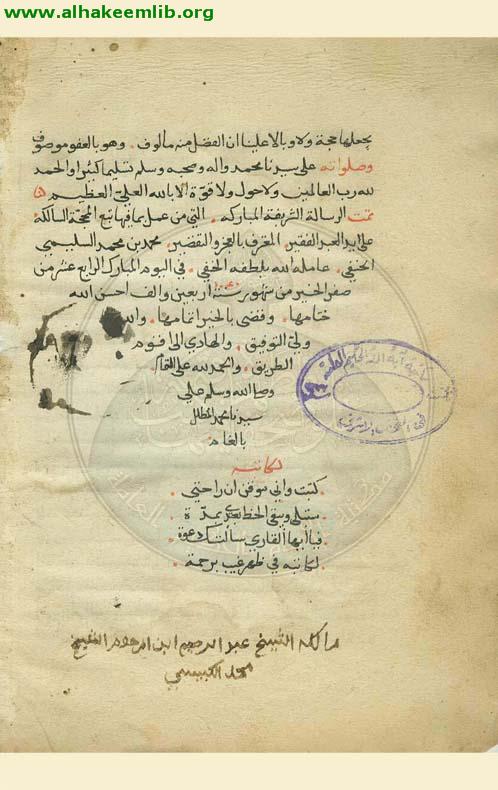 www.alhakeemlib.org
يجعلها حجة ولا وبالا علينا ان الفضل منه مألوف . وهو بالعفو موصوف
وصلواته على سيدنا محمد واله وصحبه وسلم تسليما كثيرا والحمد
لله رب العالمين ولا حول ولا قوة الا بالله العلي العظيم
تمت الرسالة الشريفة المباركه . التي من عمل بما فيها تبع المحجة السالكة
على يد العبد الفقير المعترف بالعجز والتقصير محمد بن محمد السليمي
الحنفي . عامله الله بلطفه الخفي . في اليوم المبارك الرابع عشر من
صفر الخير من شهور سنة اربعين والف احسن الله
ختامها . وقضى بالخير اتمامها . والله
ولي التوفيق . والهادي الى اقوم
الطريق . والحمد لله على التمام
وصلى الله وسلم على
سيدنا محمد المظلل
بالغمام
لكاتبه
كتبت واني موقن ان راحتي .
ستبلى ويبقى الخط بعدي بمدة .
فيا ايها القاري سألتك دعوة .
لكاتبه في ظهر غيب برحمة .
مالكه الشيخ عبد الرحيم ابن المرحوم الشيخ
محمد الكبيسي